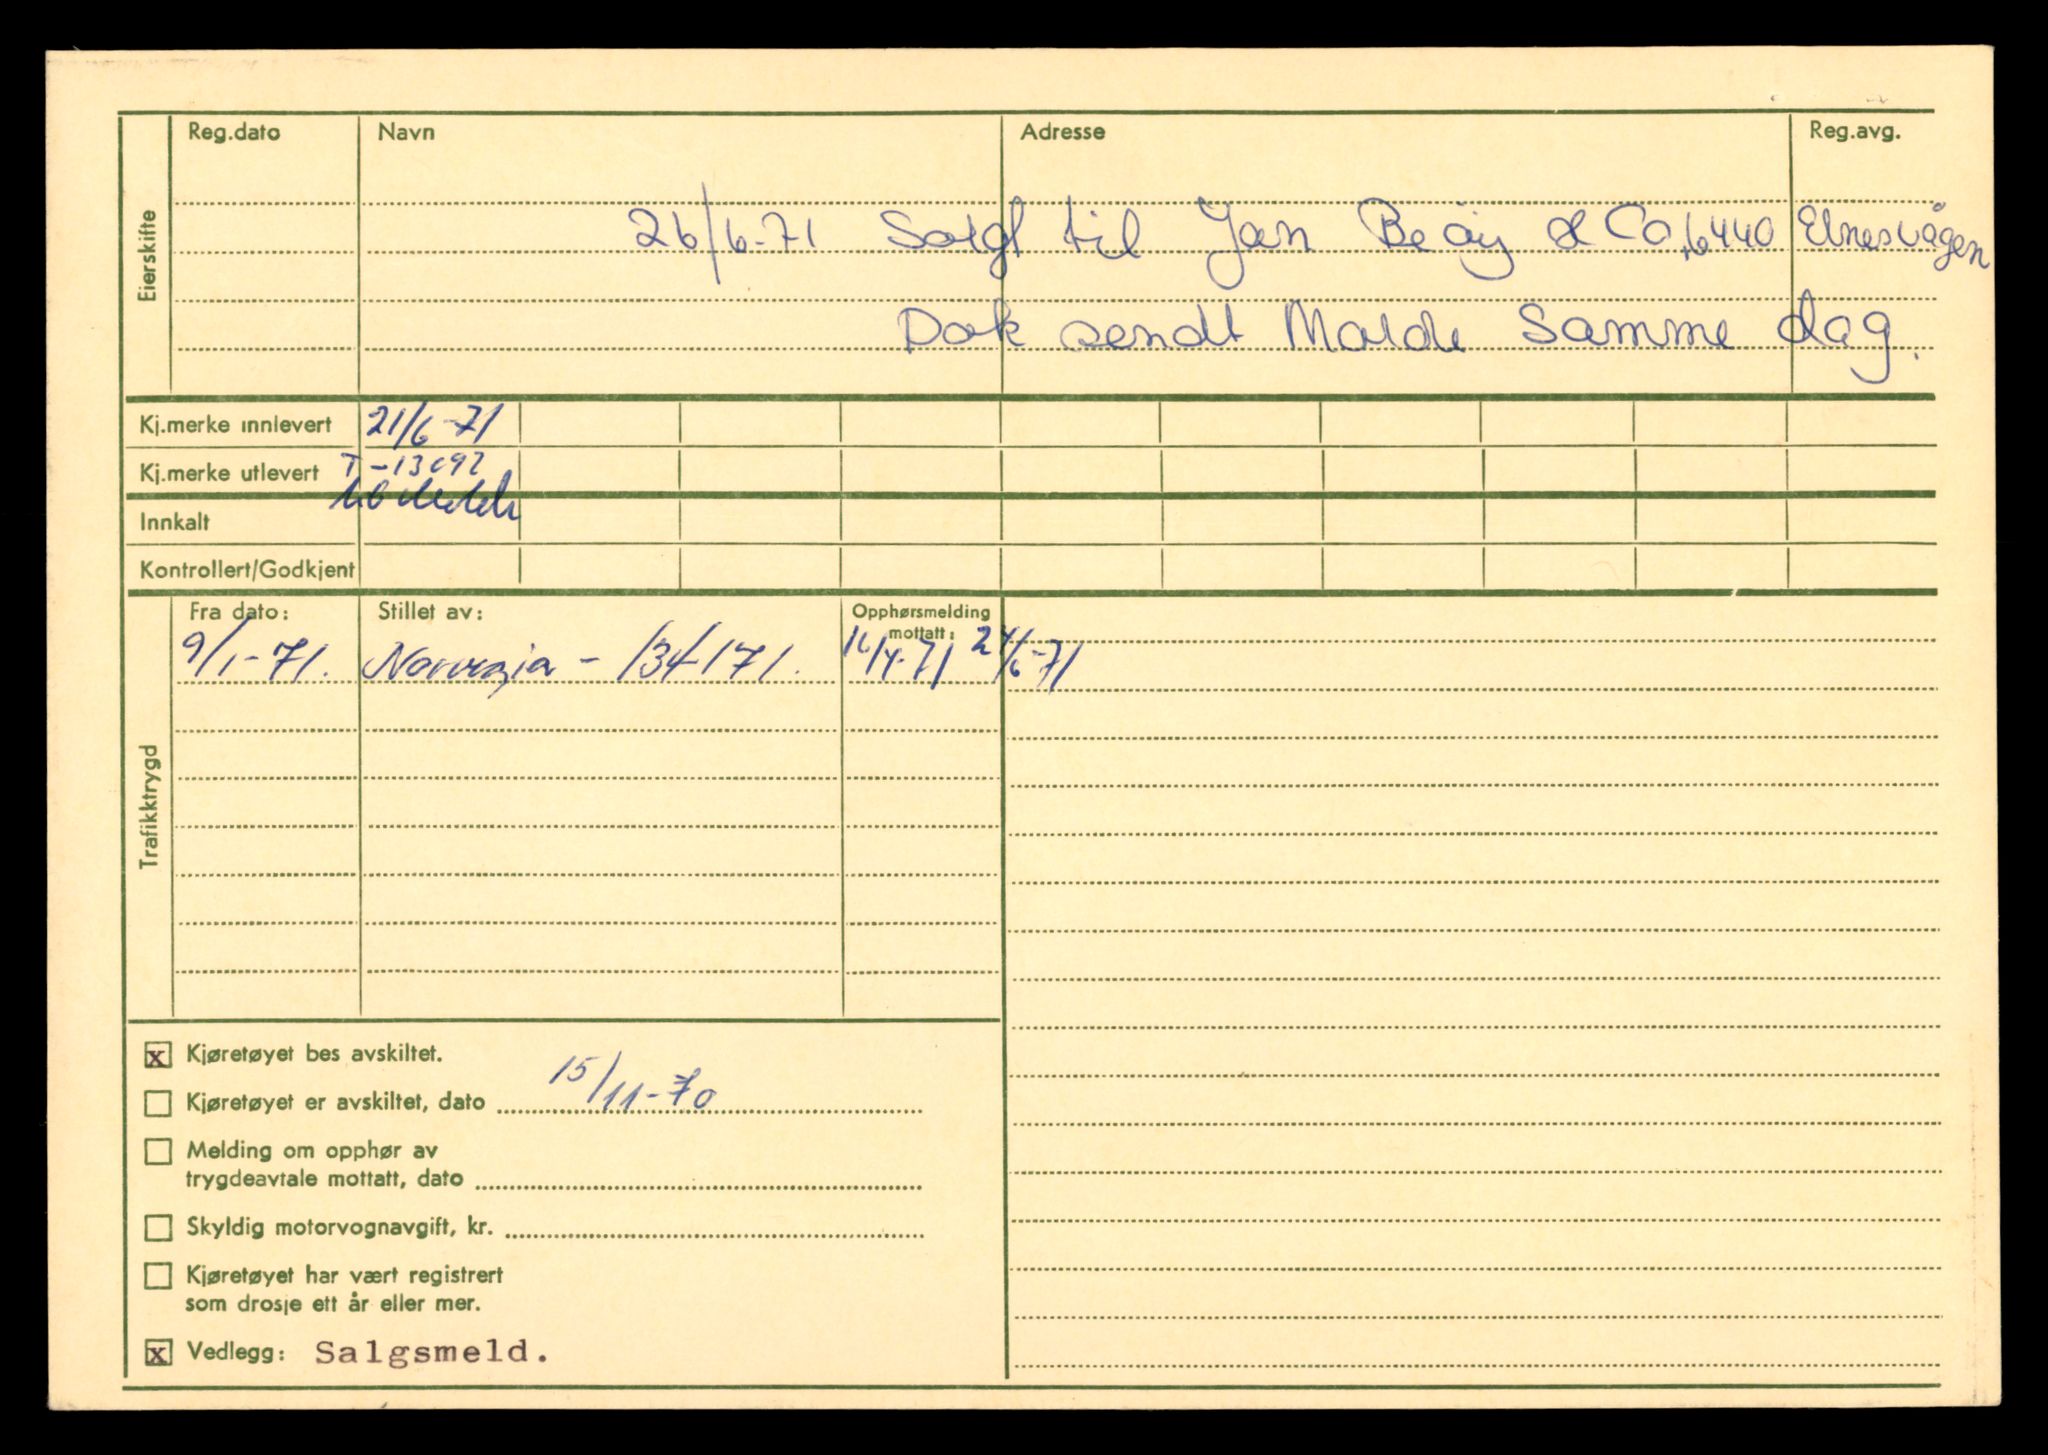 Reg.dato Navn Adresse Reg.avg.
Eierskifte
26/6-71 Solgt til Jan Beøy & Co, 6440 Elnesvågen
Dok sendt Molde samme dag.
Kj.merke innlevert 21/6-71
Kj.merke utlevert T-13092
Molde
Innkalt
Kontrollert/Godkjent
Trafikktrygd
Fra dato: Stillet av: Opphørsmelding
mottatt:
9/1-71. Norvegia - 134171. 16/4-71 24/6-71
x Kjøretøyet bes avskiltet.
Kjøretøyet er avskiltet, dato 15/11-70
Melding om opphør av
trygdeavtale mottatt, dato
Skyldig motorvognavgift, kr.
Kjøretøyet har vært registrert
som drosje ett år eller mer.
x Vedlegg: Salgsmeld.